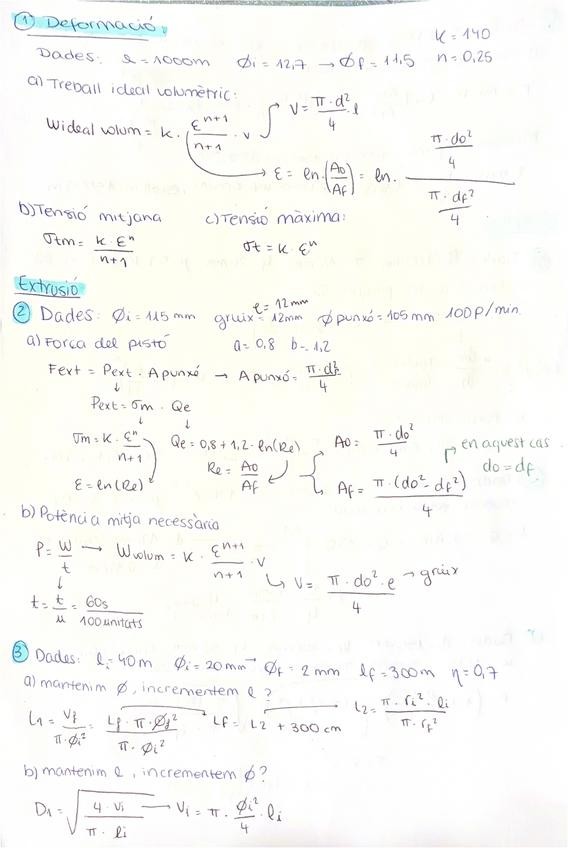 ① Deformació:
K = 140
Dades: l = 1000m ϕi = 12,7 → ϕf = 11,5 n = 0,25
a) Treball ideal volumètric:
Wideal volum = K · ε^(n+1)/(n+1) · V → V = π·d²/4 · l
→ ε = ln·(Ao/Af) = ln · (π·do²/4)/(π·df²/4)
b) Tensió mitjana c) Tensió màxima:
σtm = K·ε^n/(n+1) σt = K·ε^n
Extrusió
② Dades: ϕi = 115 mm gruix = 12mm e = 12mm ϕ punxó = 105 mm 100 P/min.
a) Força del pistó a = 0,8 b = 1,2
Fext = Pext · A punxó → A punxó = π·dp²/4
↓
Pext = σm · Qe
↓ ↓
σm = K·ε^n/(n+1) Qe = 0,8 + 1,2 · ln(Re) Ao = π·do²/4 → en aquest cas do = df
ε = ln(Re) Re = Ao/Af Af = π·(do² - df²)/4
b) Potència mitja necessària
P = W/t → Wvolum = K · ε^(n+1)/(n+1) · V
↓ ↳ V = π·do²·e/4 → gruix
t = t/u = 60s/100 unitats
③ Dades: li = 40m ϕi = 20 mm → ϕf = 2 mm lf = 300 m η = 0,7
a) mantenim ϕ, incrementem l ?
L1 = Vf/π·ϕi² = Lf·π·ϕf²/π·ϕi² → Lf = L2 + 300 cm → L2 = π·ri²·li/π·rf²
b) mantenim l, incrementem ϕ?
D1 = √(4·Vi/π·li) → Vi = π · ϕi²/4 · li